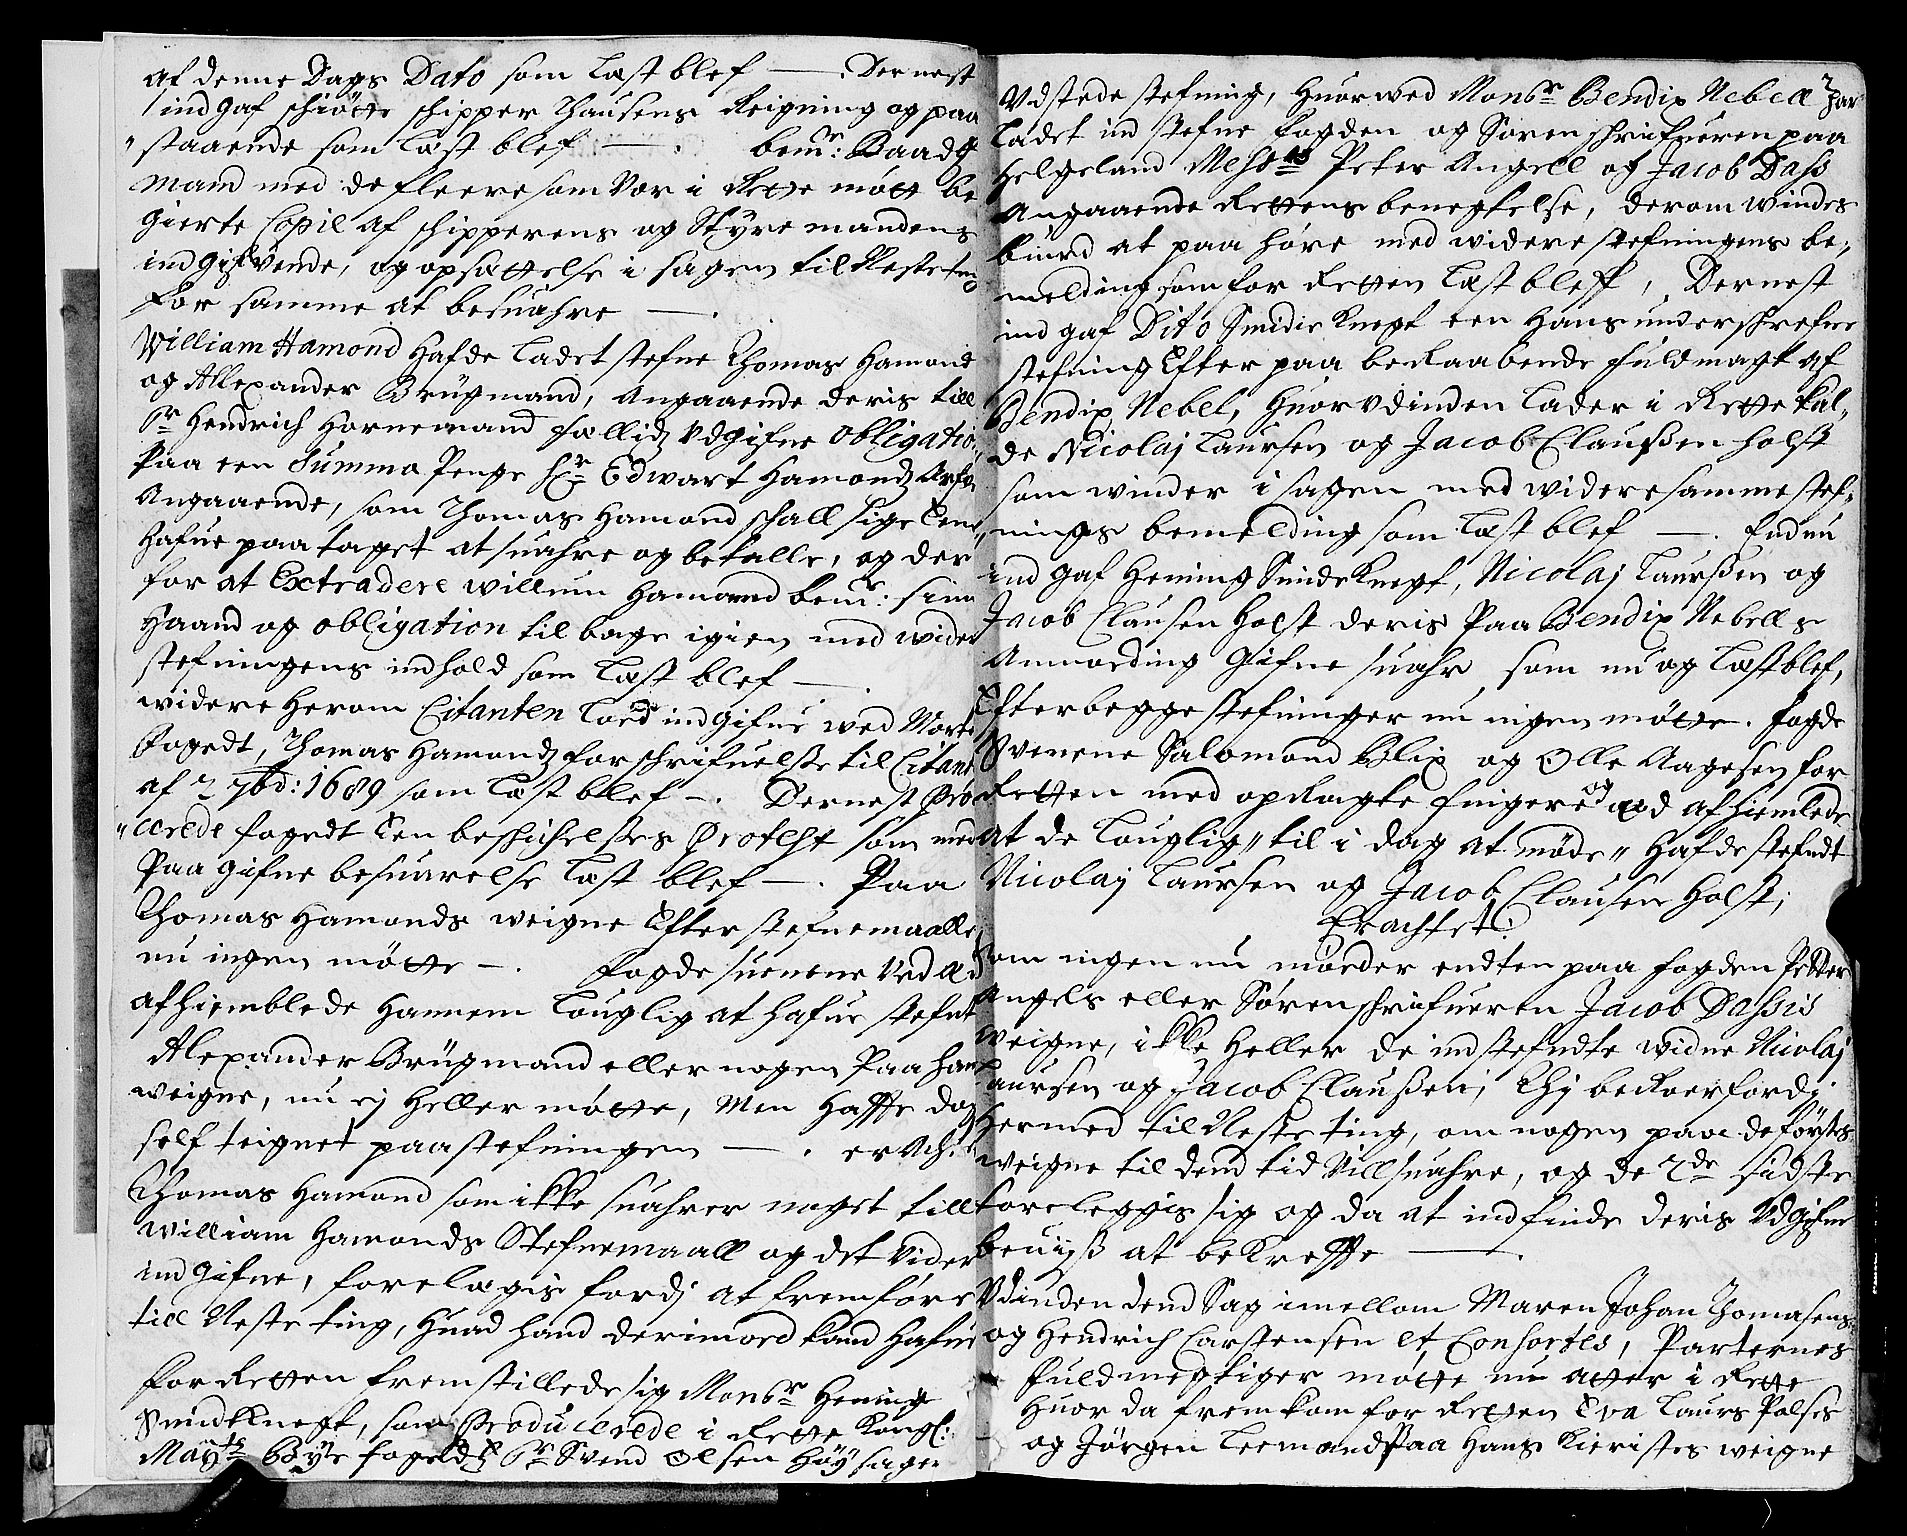 af denne Dags Dato som læst blef —. Dernest
indgaf schiötte schipper Thausens Reigning og paa
staaende som læst blef —. bemr: Baads
mand med de fleere som vor i Rette mötte be
gierte Copil af schipperens og Styremandens
indgifvende, og opsættelse i sagen til Neste ting
for samme at besuahre —.
William Hamond Hafde ladet stefne Thomas Hamond
og Allexander Brügmand, Angaaende deris till
Sr Hendrich Hornemand sællig vdgifne obligatio
Paa een Summa Penge Hr Edwart Hamonds Arfve
Angaaende, som Thomas Hamond schall sige Eene
Hafue paataget at suahre og betalle, og der
for at Extradere willum Hamond bemr: sinn
Haand og obligation tilbage igien med wider
stefningens indhold som læst blef —.
widere Herom Citanten loed indgifue ved Morten
Fogedt, Thomas Hamonds forschrifuelse til Citant
af 2 7bd: 1689 som læst blef —. Dernest Pro
cerede fogedt Een beschichelses Protest som med
Paa gifne besuarelse læst blef —. Paa
Thomas Hamonds weigne Efter stefnemaalle
nu ingen mötte —. fogde suenene ved Æd
afhiemblede Hannem louglig at hafue stefnt
Alexander Brügmand eller nogen Paa hans
weigne, nu ej Heller mötte, Men Haffr dog
self teignet paa stefningen —. er Ach:
Thomas Hamond som ikke suahrer noget till
William Hamonds Stefnemaall og det vider
indgifne, forelægis fordj at fremföre
till Neste ting, Huad hand derimoed kand Hafue
for Retten fremstillede sig Monsr Hening
Smidtknegt, som Producerede i Rette Kongl:
Maÿts Bÿe fogeds Sr Svend Olsen Höÿ sager
Vdstede stefning, Huorwed Monsr Bendix Nebell Har
ladet ind stefne fogden og Sorenschrifueren paa
Helgeland Mesrs Peter Angell og Jacob Dass
Angaaende Rettens benegtelse, derom windes
biurd at paa höre med widere stefningens be
melding som for Retten læst bleff, Dernest
ind gaf Dito Smidie Knegt een Hans underschrefne
stefning Efter paa beraabende fuldmagt af
Bendix Nebel, Huorvdinden lader i Rette kal
de Nicolaj Laursen og Jacob Claussen Holst
som winder i sagen med widere samme stef
nings bemelding som læst blef —. Endnu
ind gaf Hening Smideknegt, Nicolaj Laurssen og
Jacob Clausen Holst deris Paa Bendix Nebells
Anmording gifne suahr som nu og læst blef,
Efter begge stefninger nu ingen mötte. fogde
Svenene Salomond Blix og Olle Aagesen for
Retten med opragte fingere og æd afhiemlede
at de louglig til i dag at möde Hafde stefndt
Nicolaj Laursen og Jacob Clausen Holst;
Erachtet.
Som ingen nu möeder endten paa fogden Petter
Angels eller Sörenschrifueren Jacob Dassis
weigne, ikke Heller de indstefndte widne Nicolaj
Laursen og Jacob Claussen; Thj beroer fordj
Hermed til Neste ting, om nogen paa de förstes
weigne til dend tid vill suahre, og de 2de sidste
foreleggis sig og da at indfinde deris Vdgifne
beuiss at bekreffte —.
Vdinden dend Sag imellom Maren Johan Thomasens
og Hendrich Carstensen et Consortes, Parternes
fuldmegtiger mötte nu atter i Rette
Huor da fremkom for Retten Eva Laurs Palses
og Jörgen Leemand Paa Hans Kieristes weigne